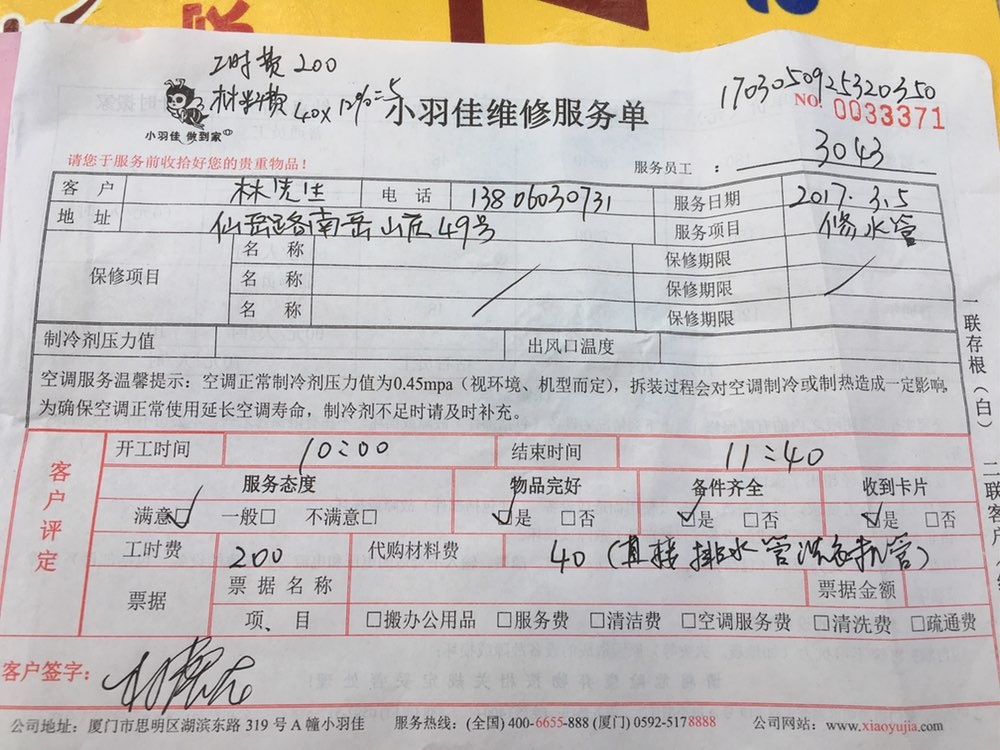 工时费 200
材料费 40×12%=5
1703050925320350
小羽佳 做到家
小羽佳维修服务单
NO. 0033371
请您于服务前收拾好您的贵重物品！
服务员工： 3043
客 户 林先生 电 话 13806030731 服务日期 2017.3.5
地 址 仙岳路南岳山庄49号 服务项目 修水管
保修项目
名 称 保修期限
名 称 保修期限
名 称 保修期限
制冷剂压力值 出风口温度
空调服务温馨提示：空调正常制冷剂压力值为0.45mpa（视环境、机型而定），拆装过程会对空调制冷或制热造成一定影响，
为确保空调正常使用延长空调寿命，制冷剂不足时请及时补充。
一联存根（白）
二联客户
客户评定
开工时间 10:00 结束时间 11:40
服务态度 物品完好 备件齐全 收到卡片
满意☑ 一般□ 不满意□ ☑是 □否 ☑是 □否 ☑是 □否
工时费 200 代购材料费 40（直接排水管洗衣机管）
票据
票 据 名 称 票据金额
项、 目 □搬办公用品 □服务费 □清洁费 □空调服务费 □清洗费 □疏通费
客户签字：
公司地址：厦门市思明区湖滨东路 319 号 A 幢小羽佳 服务热线：(全国) 400-6655-888 (厦门) 0592-5178888 公司网站：www.xiaoyujia.com